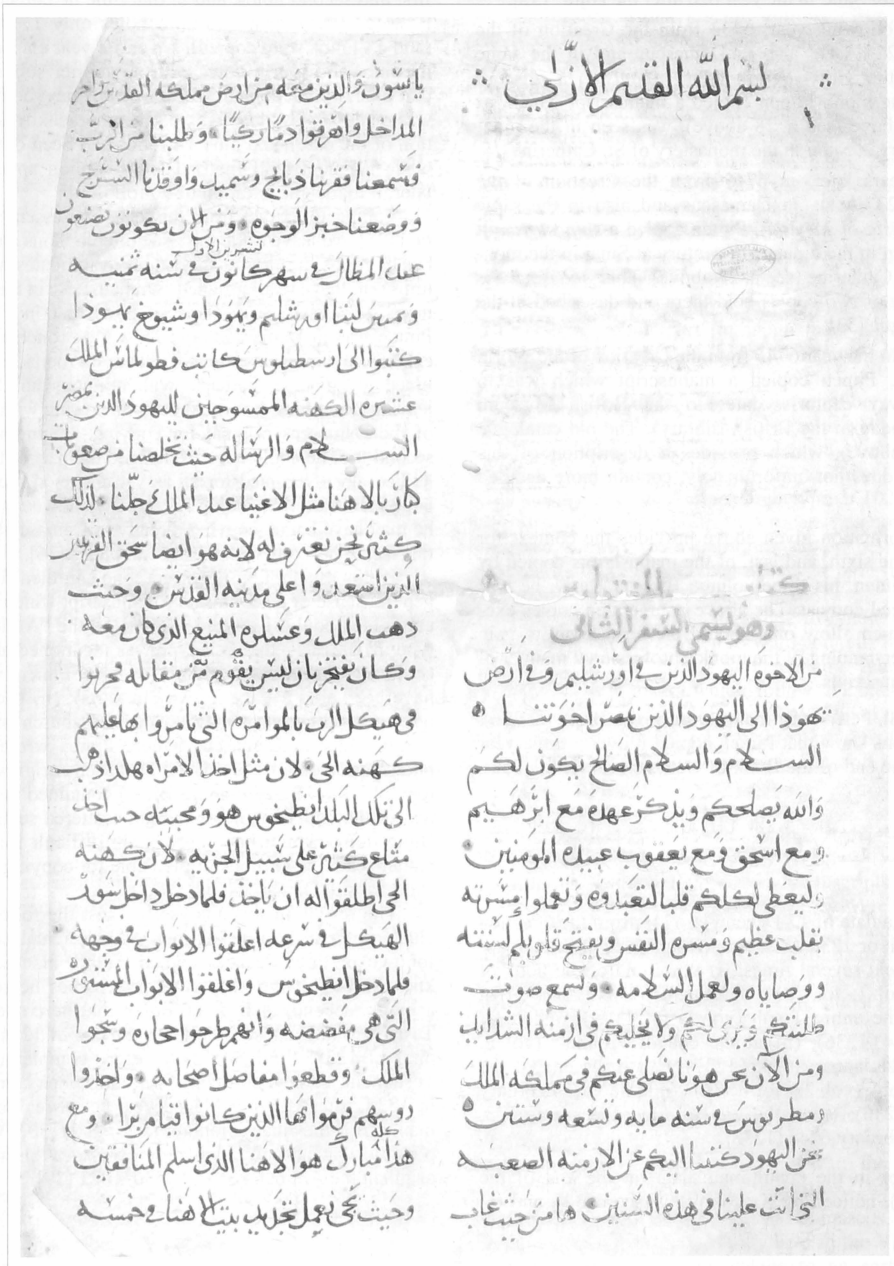 بسم الله القديم الازلي
كتاب
وهو يسمى السفر الثانى
من الاخوه اليهود الذين فى اورشليم وفى ارض
يهودا الى اليهود الذين بمصر اخوتنا
السلام والسلام الصالح يكون لكم
والله يصلحكم ويذكر عهده مع ابرهيم
ومع اسحق ومع يعقوب عبيده المومنين
وليعطى لكلكم قلبا لتعبدوه وتعملوا مسرته
بقلب عظيم ومسره النفس ويفتح قلوبكم لسنته
ووصاياه ولعمل السلامه وتسمع صوت
طلبتكم ولا يخليكم فى ازمنه الشدايد
ومن الآن نحن هونا نصلى عنكم فى مملكه الملك
دمطريوس فى سنه مايه وتسعه وستين
نحن اليهود كتبنا اليكم عن الازمنه الصعبه
التى اتت علينا فى هذه السنين من حيث غاب
ياسون والذين معه من ارض مملكه القدس
المداخل واهرقوا دما زكيا وطلبنا من الرب
فسمعنا فقربنا ذبايح وسميد واوقدنا السرج
ووضعنا خبز الوجوه ومن الان تكونون تصنعون
تشرين الاول
عيد المظال فى شهر كانون فى سنه ثمنيه
اورشليم ويهودا وشيوخ يهودا
كتبوا الى ارسطبلوس كاتب فطولماس الملك
عشيره الكهنه الممسوحين لليهود الذين بمصر
السلام والرساله حيث تخلصنا من صعوبات
كبار بالاهنا مثل الاغنيا عند الملك لذلك
كثير نحن نعترف له لانه هو ايضا سحق
الذين استعدوا على مدينه القدس وحيث
ذهب الملك وعسكره المنيع الذى كان معه
وكان يفتخر بان ليس يقوم من مقابله
فى هيكل الرب بالموامره التى تامروا بها عليهم
كهنه الحى لان مثل اخذ الامراه هكذا ذهب
الى تلك البلد انطيخوس هو ومحبيه حيث اخذ
متاع كثير على سبيل الجزيه لان كهنه
الحى اطلقوا له ان ياخذ فلما دخل داخل سور
الهيكل فى سرعه اغلقوا الابواب فى وجهه
فلما دخل انطيخوس واغلقوا الابواب
التى هى مفضضه وانهم طرحوا حجاره
الملك وقطعوا مفاصل اصحابه واخذوا
روسهم فرموا بها الذين كانوا ومع
هذا كله مبارك هو الاهنا الذى اسلم المنافقين
وحيث نحن نعمل تجديد بيت الاهنا فى خمسه